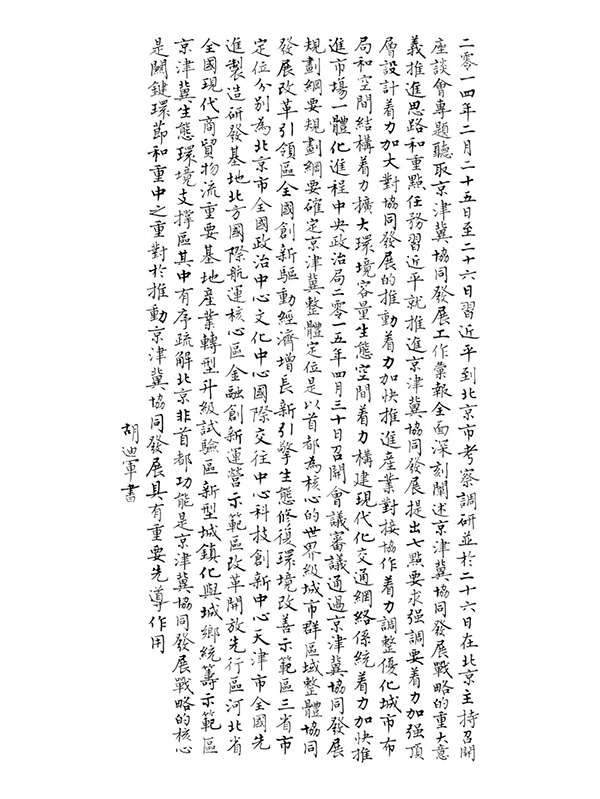 二零一四年二月二十五日至二十六日習近平到北京市考察調研並於二十六日在北京主持召開
座談會專題聽取京津冀協同發展工作彙報全面深刻闡述京津冀協同發展戰略的重大意
義推進思路和重點任務習近平就推進京津冀協同發展提出七點要求强調要着力加强頂
層設計着力加大對協同發展的推動着力加快推進産業對接協作着力調整優化城市布
局和空間結構着力擴大環境容量生態空間着力構建現代化交通網絡係統着力加快推
進市場一體化進程中央政治局二零一五年四月三十日召開會議審議通過京津冀協同發展
規劃綱要規劃綱要確定京津冀整體定位是以首都為核心的世界級城市群區域整體協同
發展改革引領區全國創新驅動經濟增長新引擎生態修復環境改善示範區三省市
定位分别為北京市全國政治中心文化中心國際交往中心科技創新中心天津市全國先
進製造研發基地北方國際航運核心區金融創新運營示範區改革開放先行區河北省
全國現代商貿物流重要基地産業轉型升級試驗區新型城鎮化與城鄉統籌示範區
京津冀生態環境支撑區其中有序疏解北京非首都功能是京津冀協同發展戰略的核心
是關鍵環節和重中之重對於推動京津冀協同發展具有重要先導作用
胡迪軍書